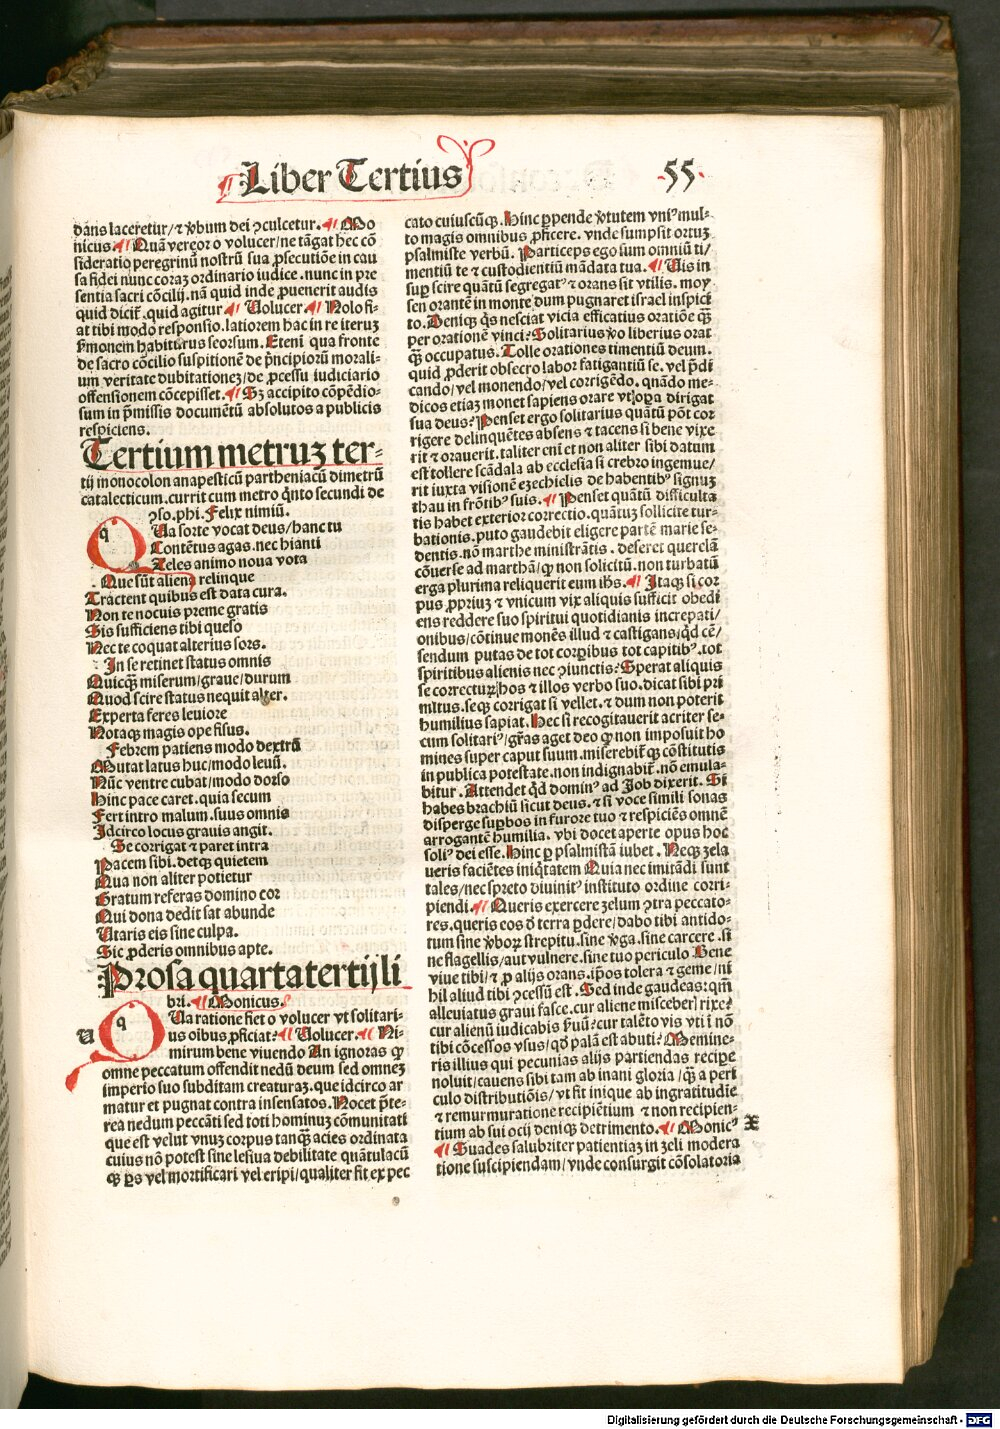 Liber Tertius
.55.
dãris laceretur/ ⁊ v̾bum dei ꝯculcetur. Mo
nicus. Quã vereor o volucer/ne tãgat hec cõ
sideratio peregrinũ nostrũ sua ꝓsecutiõe in cau
sa fidei nunc coraʒ ordinario iudice. nunc in pre
sentia sacri cõcilij. nã quid inde ꝓuenerit audis
quid dicit̃. quid agitur Uolucer. Nolo fi-
at tibi modo responsio. latiorem hac in re iteruʒ
s̃monem habiturus seorsum. Etenĩ qua fronte
de sacro cõcilio suspitionẽ de p̃ncipiorũ morali-
um veritate dubitationeʒ/de ꝓcessu iudiciario
offensionem cõcepisset. Sʒ accipito cõpẽdio-
sum in p̃missis documẽtũ absolutos a publicis
respiciens.
Tertium metruʒ ter-
tij monocolon anapesticũ partheniacũ dimetrũ
catalecticum. currit cum metro q̃nto secundi de
ꝯso. phi. Felix nimiũ.
q
Ua sorte vocat deus/hanc tu
Contẽtus agas. nec hianti
Zeles animo noua vota
Que sũt aliena relinque
Tractent quibus est data cura.
Non te nocuis preme gratis
Sis sufficiens tibi queso
Nec te coquat alterius sors.
In se retinet status omnis
Quicq̃ʒ miserum/graue/durum
Quod scire status nequit alter.
Experta feres leuiore
Notaqʒ magis ope fisus.
Febrem patiens modo dextrũ
Mutat latus huc/modo leuũ.
Nũc ventre cubat/modo dorso
Hinc pace caret. quia secum
Fert intro malum. suus omnis
Idcirco locus grauis angit.
Se corrigat ⁊ paret intra
Pacem sibi. detqʒ quietem
Qua non aliter potietur
Gratum referas domino cor
Qui dona dedit sat abunde
Utaris eis sine culpa.
Sic ꝓderis omnibus apte.
Prosa quarta tertij li
bri. Monicus.
u
q
Ua ratione fiet o volucer vt solitari-
us oĩbus ꝓficiat? Uolucer. Ni-
mirum bene viuendo An ignoras qꝫ
omne peccatum offendit nedũ deum sed omneʒ
imperio suo subditam creaturaʒ. que idcirco ar
matur et pugnat contra insensatos. Nocet p̃te-
rea nedum peccãti sed toti hominuʒ cõmunitati
que est velut vnuʒ corpus tanq̃ʒ acies ordinata
cuius nõ potest sine lesiua debilitate quãtulacũ
qʒ ꝑs vel mortificari vel eripi/qualiter fit ex pec
cato cuiuscũqʒ. Hinc ꝑpende v̾tutem vniꝰ mul-
to magis omnibus ꝓficere. vnde sumpsit ortuʒ
psalmiste verbũ. Particeps ego sum omniũ ti/
mentiũ te ⁊ custodientiũ mãdata tua. Uis in
suꝑ scire quãtũ segregatꝰ ⁊ orans sit vtilis. moy
sen orantẽ in monte dum pugnaret israel inspici
to. Deniqʒ q̃s nesciat vicia efficatius oratiõe q̃ʒ
per orationẽ vinci? Solitarius v̾o liberius orat
q̃ʒ occupatus. Tolle orationes timentiũ deum.
quid ꝓderit obsecro labor fatigantiũ se. vel p̃di
cando/vel monendo/vel corrigẽdo. quãdo me-
dicos etiaʒ monet sapiens orare vt opa dirigat
sua deus? Penset ergo solitarius quãtũ põt cor
rigere delinquẽtes absens ⁊ tacens si bene vixe
rit ⁊ orauerit. taliter enĩ et non aliter sibi datum
est tollere scãdala ab ecclesia si crebro ingemue/
rit iuxta visionẽ ezechielis de habentibꝰ signuʒ
thau in frõtibꝰ suis. Penset quãtũ difficulta
tis habet exterior correctio. quãtuʒ sollicite tur-
bationis. puto gaudebit eligere partẽ marie se-
dentis. nõ marthe ministrãtis. deseret querelã
cõuerse ad marthã/qꝫ non solicitũ. non turbatũ
erga plurima reliquerit eum ihs. Itaqʒ si cor
pus ꝓpriuʒ ⁊ vnicum vix aliquis sufficit obedi
ens reddere suo spiritui quotidianis increpati/
onibus/cõtinue monẽs illud ⁊ castigans/qd cẽ/
sendum putas de tot corꝑibus tot capitibꝰ. tot
spiritibus alienis nec ꝯiunctis? Sperat aliquis
se correcturũ hos ⁊ illos verbo suo. dicat sibi pri
mitus. seqʒ corrigat si vellet. ⁊ dum non poterit
humilius sapiat. Hec si recogitauerit acriter se-
cum solitariꝰ/gr̃as aget deo qꝫ non imposuit ho
mines super caput suum. miserebit̃qʒ cõstitutis
in publica potestate. non indignabit̃. nõ emula-
bitur. Attendet qd dominꝰ ad Job dixerit. Si
habes brachiũ sicut deus. ⁊ si voce simili sonas
disperge suꝑbos in furore tuo ⁊ respiciẽs omnẽ
arrogantẽ humilia. vbi docet aperte opus hoc
soliꝰ dei esse. Hinc ꝑ psalmistã iubet. Neqʒ zela
ueris faciẽtes iniq̃tatem Quia nec imitãdi sunt
tales/nec spreto diuinitꝰ instituto ordine corri-
piendi. Queris exercere zelum ꝯtra peccato-
res. queris eos d̾ terra ꝑdere/dabo tibi antido-
tum sine v̾boꝝ strepitu. sine v̾ga. sine carcere. si
ne flagellis/aut vulnere. sine tuo periculo Bene
viue tibi/⁊ ꝓ alijs orans. ip̃os tolera ⁊ geme/ni
hil aliud tibi ꝯcessũ est. Sed inde gaudeas: qm̃
alleuiatus graui fasce. cur aliene misceberꝭ rixe?
cur alienũ iudicabis s̾uũ? cur talẽto vis vti ĩ nõ
tibi cõcessos vsus/qd palã est abuti? Memine-
ris illius qui pecunias alijs partiendas recipe
noluit/cauens sibi tam ab inani gloria/q̃ʒ a peri
culo distributiõis/vt fit inique ab ingratitudĩe
⁊ remurmuratione recipiẽtium ⁊ non recipien-
tium ab sui ocij deniqʒ detrimento. Monicꝰ
Suades salubriter patientiaʒ in zeli modera
tione suscipiendam/vnde consurgit cõsolatoria
x
Digitalisierung gefördert durch die Deutsche Forschungsgemeinschaft - DFG